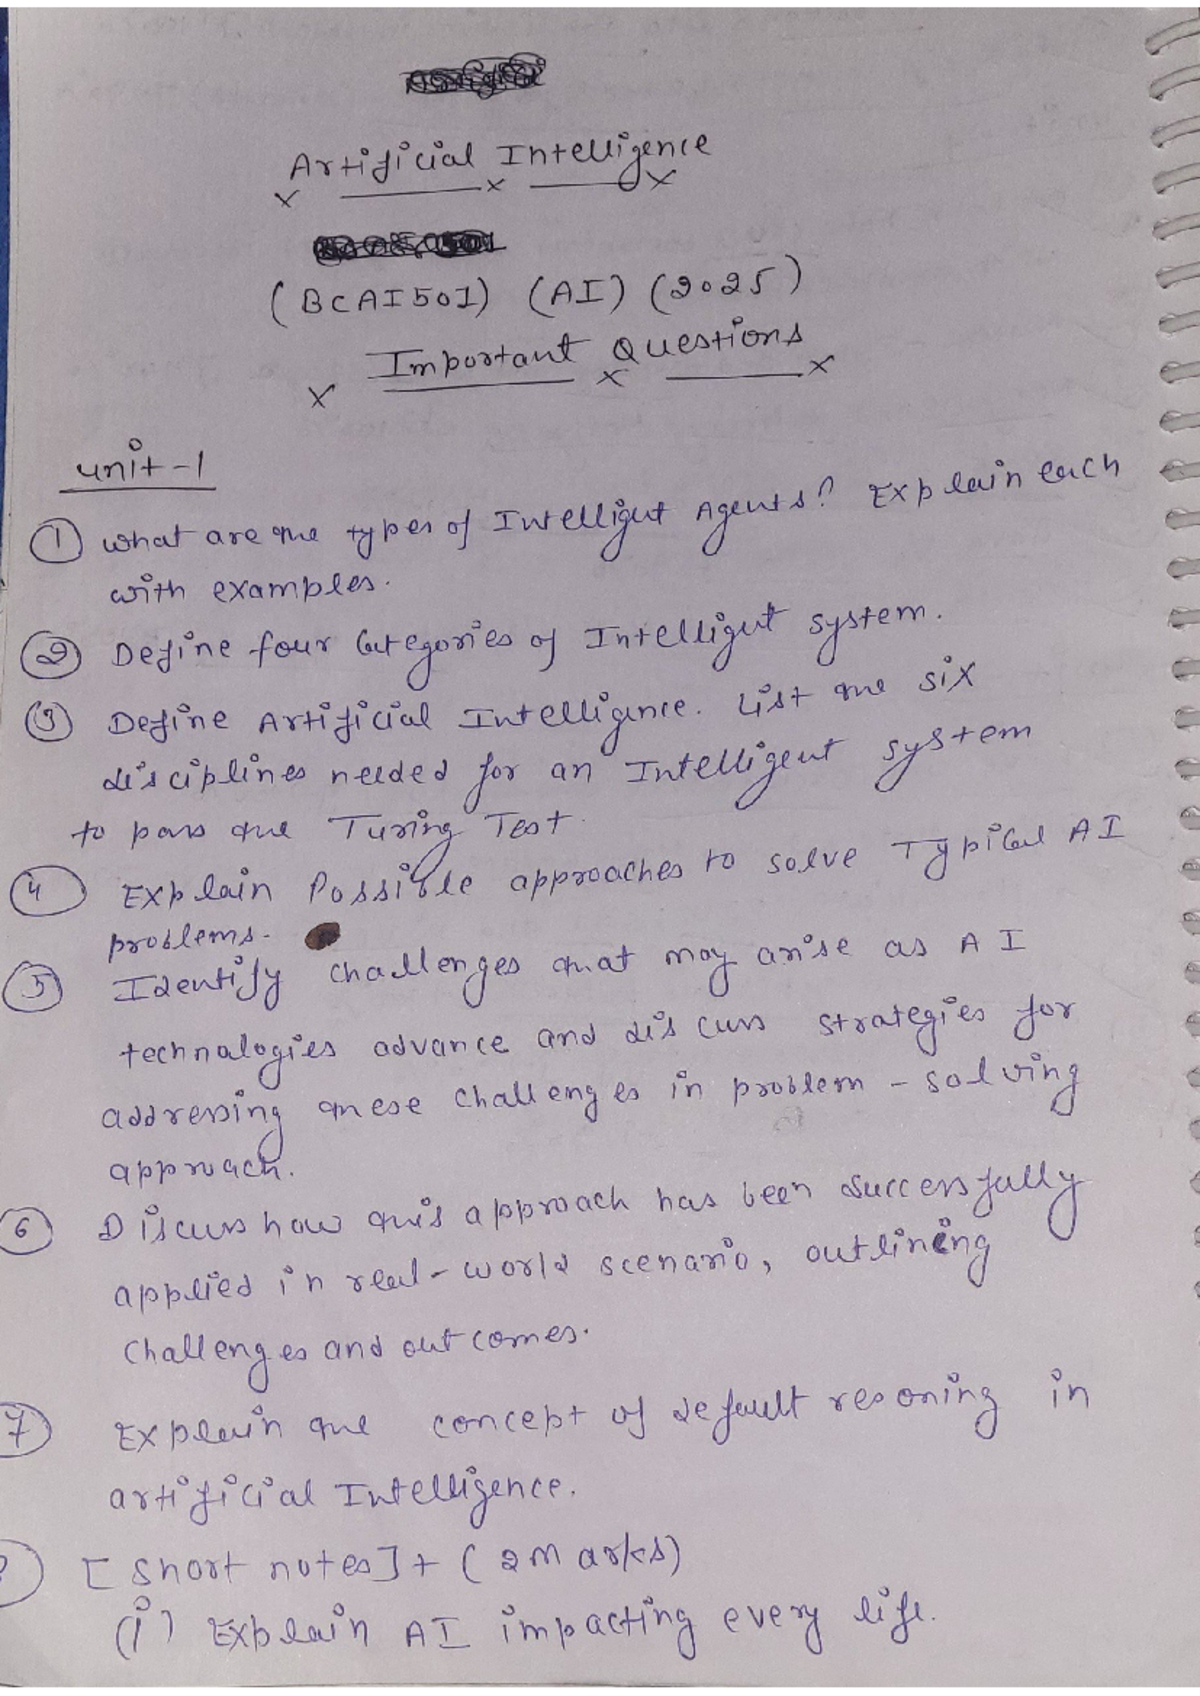 Artificial Intelligence
(BCAI501) (AI) (2025)
Important Questions
unit-1
① what are the types of Intelligent Agents? Explain each
with examples.
② Define four Categories of Intelligent system.
③ Define Artificial Intelligence. List the six
disciplines needed for an Intelligent system
to pass the Turing Test.
④ Explain Possible approaches to solve Typical AI
problems.
⑤ Identify challenges that may arise as AI
technologies advance and discuss strategies for
addressing these challenges in problem-solving
approach.
⑥ Discuss how this approach has been successfully
applied in real-world scenario, outlining
challenges and outcomes.
⑦ Explain the concept of default resoning in
artificial Intelligence.
[short notes]+ (2Marks)
(i) Explain AI impacting every life.